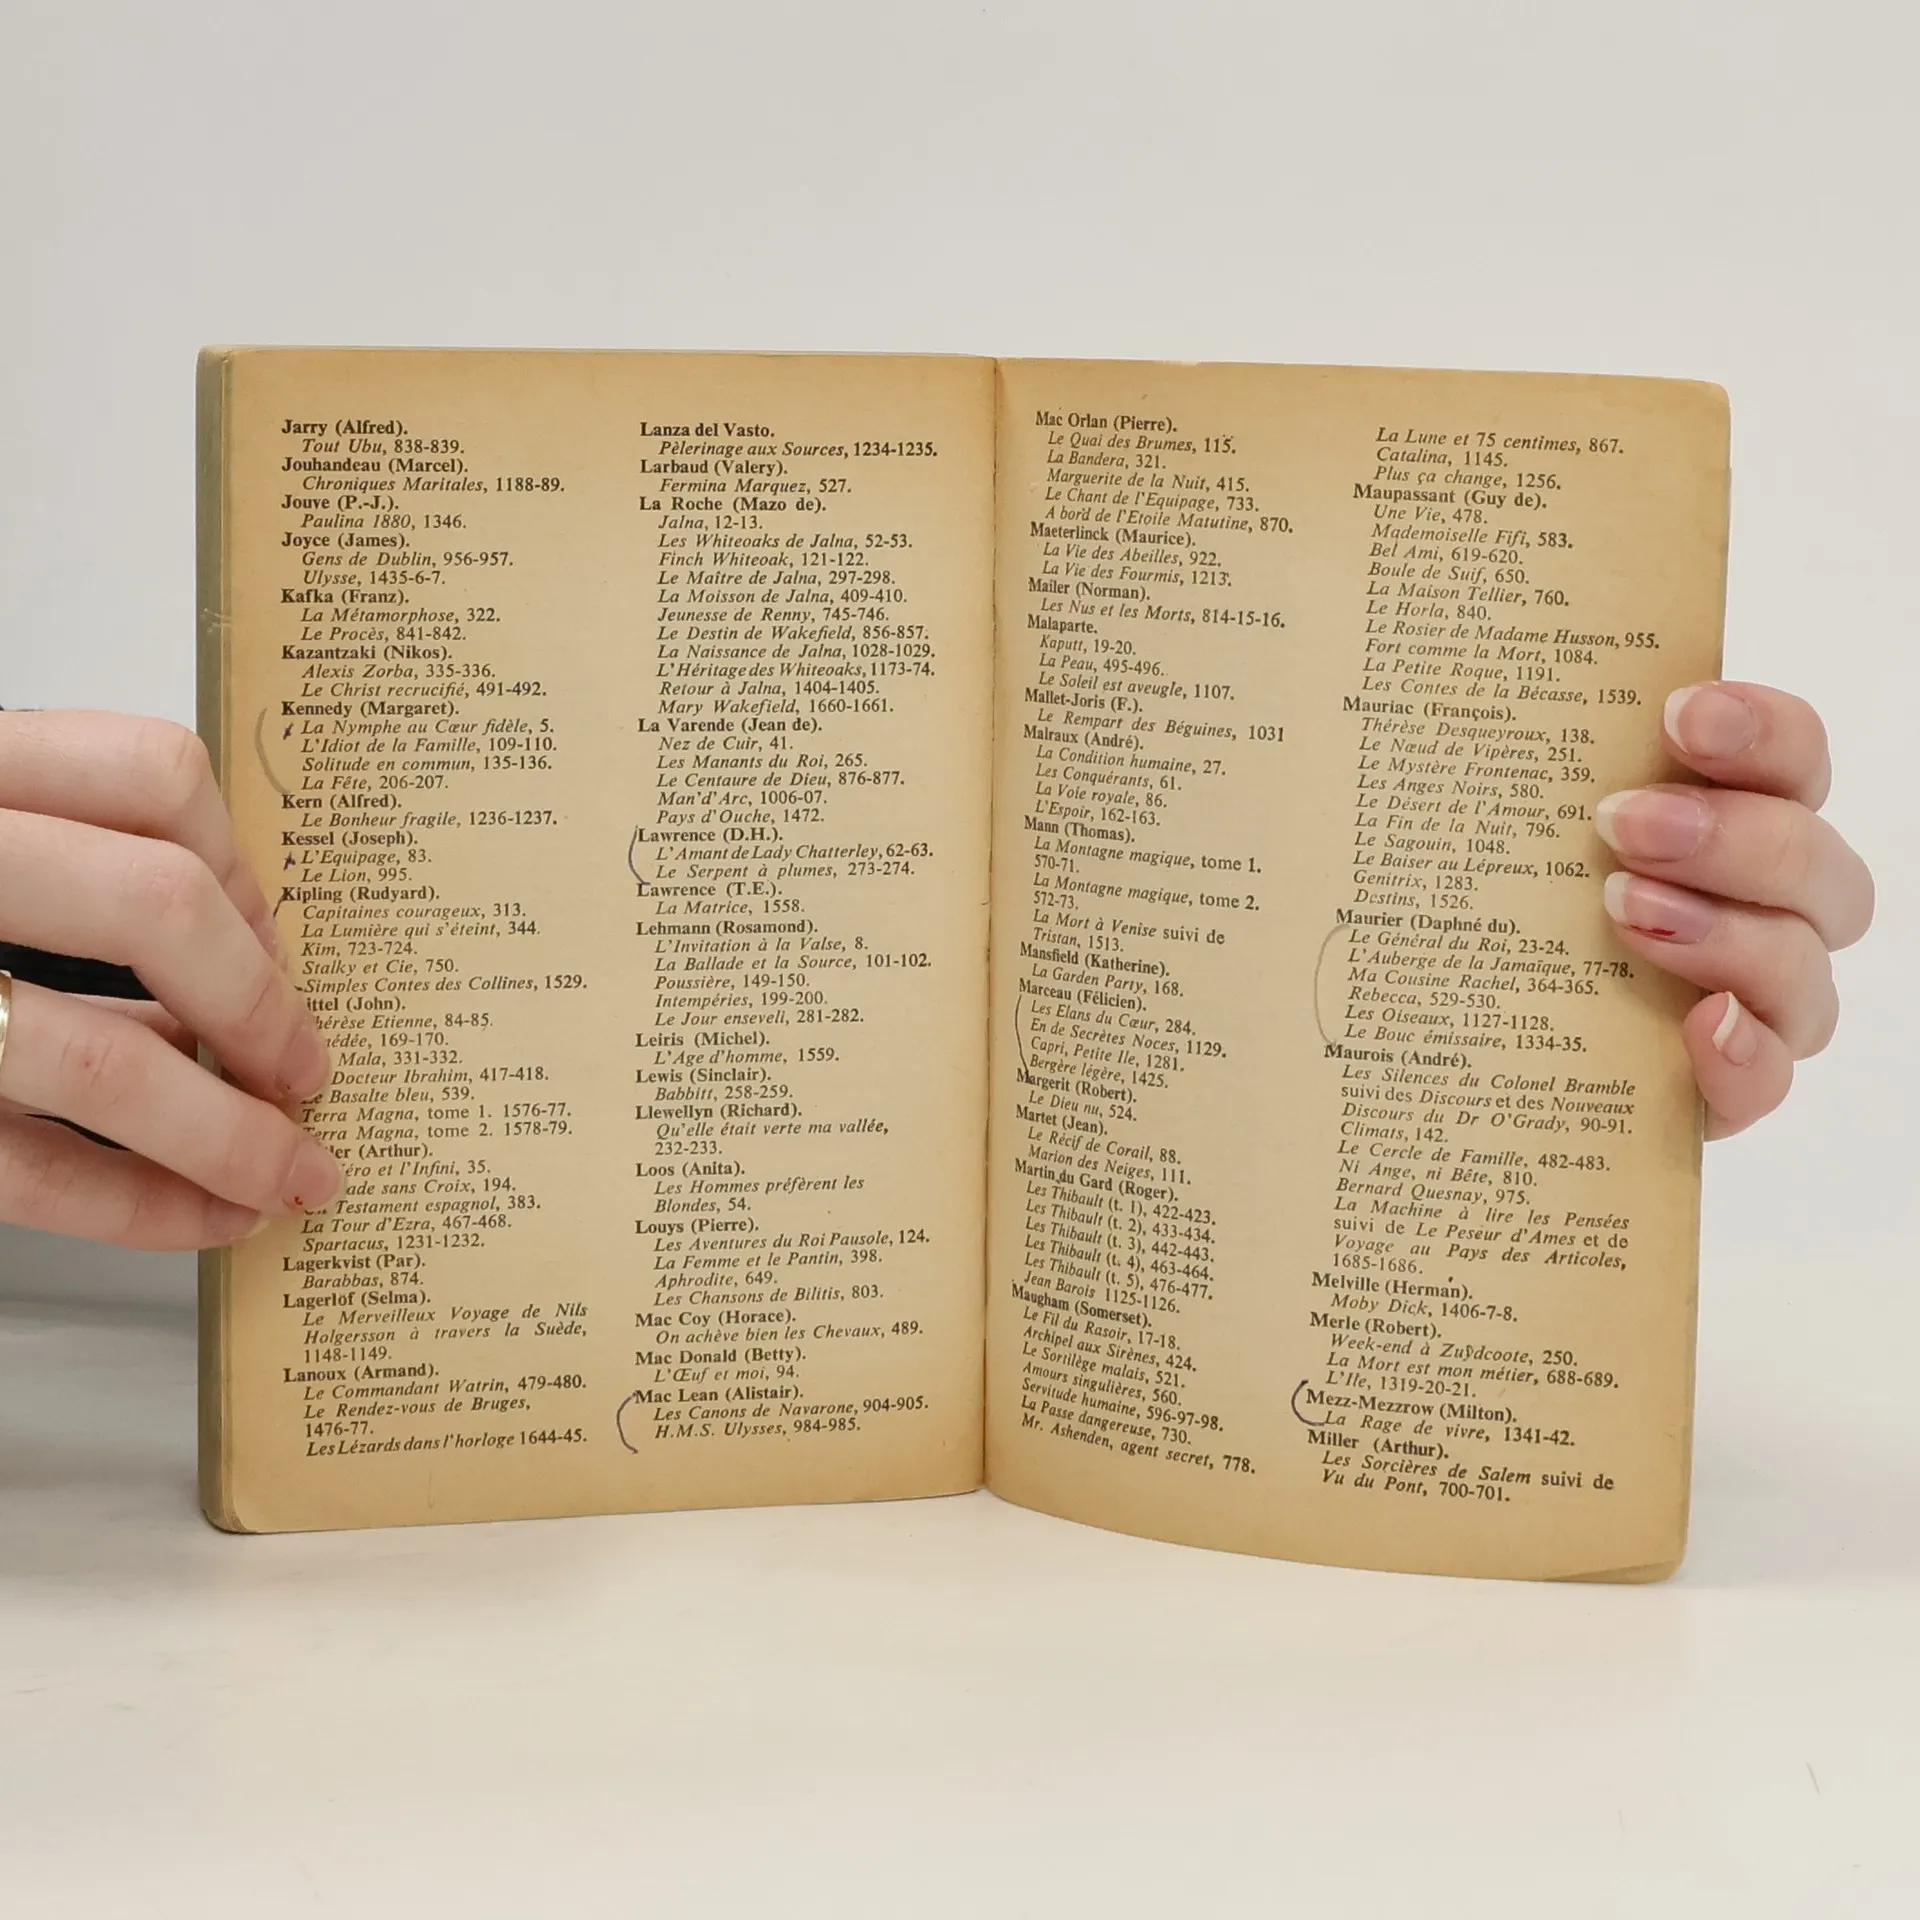 Jarry (Alfred).
Tout Ubu, 838-839.
Jouhandeau (Marcel).
Chroniques Maritales, 1188-89.
Jouve (P.-J.).
Paulina 1880, 1346.
Joyce (James).
Gens de Dublin, 956-957.
Ulysse, 1435-6-7.
Kafka (Franz).
La Métamorphose, 322.
Le Procès, 841-842.
Kazantzaki (Nikos).
Alexis Zorba, 335-336.
Le Christ recrucifié, 491-492.
Kennedy (Margaret).
La Nymphe au Cœur fidèle, 5.
L'Idiot de la Famille, 109-110.
Solitude en commun, 135-136.
La Fête, 206-207.
Kern (Alfred).
Le Bonheur fragile, 1236-1237.
Kessel (Joseph).
L'Equipage, 83.
Le Lion, 995.
Kipling (Rudyard).
Capitaines courageux, 313.
La Lumière qui s'éteint, 344.
Kim, 723-724.
Stalky et Cie, 750.
Simples Contes des Collines, 1529.
ittel (John).
hérèse Etienne, 84-85.
édée, 169-170.
Mala, 331-332.
Docteur Ibrahim, 417-418.
Le Basalte bleu, 539.
Terra Magna, tome 1. 1576-77.
Terra Magna, tome 2. 1578-79.
ler (Arthur).
éro et l'Infini, 35.
ade sans Croix, 194.
Testament espagnol, 383.
La Tour d'Ezra, 467-468.
Spartacus, 1231-1232.
Lagerkvist (Par).
Barabbas, 874.
Lagerlöf (Selma).
Le Merveilleux Voyage de Nils
Holgersson à travers la Suède,
1148-1149.
Lanoux (Armand).
Le Commandant Watrin, 479-480.
Le Rendez-vous de Bruges,
1476-77.
Les Lézards dans l'horloge 1644-45.
Lanza del Vasto.
Pèlerinage aux Sources, 1234-1235.
Larbaud (Valery).
Fermina Marquez, 527.
La Roche (Mazo de).
Jalna, 12-13.
Les Whiteoaks de Jalna, 52-53.
Finch Whiteoak, 121-122.
Le Maître de Jalna, 297-298.
La Moisson de Jalna, 409-410.
Jeunesse de Renny, 745-746.
Le Destin de Wakefield, 856-857.
La Naissance de Jalna, 1028-1029.
L'Héritage des Whiteoaks, 1173-74.
Retour à Jalna, 1404-1405.
Mary Wakefield, 1660-1661.
La Varende (Jean de).
Nez de Cuir, 41.
Les Manants du Roi, 265.
Le Centaure de Dieu, 876-877.
Man'd'Arc, 1006-07.
Pays d'Ouche, 1472.
Lawrence (D.H.).
L'Amant de Lady Chatterley, 62-63.
Le Serpent à plumes, 273-274.
Lawrence (T.E.).
La Matrice, 1558.
Lehmann (Rosamond).
L'Invitation à la Valse, 8.
La Ballade et la Source, 101-102.
Poussière, 149-150.
Intempéries, 199-200.
Le Jour enseveli, 281-282.
Leiris (Michel).
L'Age d'homme, 1559.
Lewis (Sinclair).
Babbitt, 258-259.
Llewellyn (Richard).
Qu'elle était verte ma vallée,
232-233.
Loos (Anita).
Les Hommes préfèrent les
Blondes, 54.
Louys (Pierre).
Les Aventures du Roi Pausole, 124.
La Femme et le Pantin, 398.
Aphrodite, 649.
Les Chansons de Bilitis, 803.
Mac Coy (Horace).
On achève bien les Chevaux, 489.
Mac Donald (Betty).
L'Œuf et moi, 94.
Mac Lean (Alistair).
Les Canons de Navarone, 904-905.
H.M.S. Ulysses, 984-985.
Mac Orlan (Pierre).
Le Quai des Brumes, 115.
La Bandera, 321.
Marguerite de la Nuit, 415.
Le Chant de l'Equipage, 733.
A bord de l'Etoile Matutine, 870.
Maeterlinck (Maurice).
La Vie des Abeilles, 922.
La Vie des Fourmis, 1213.
Mailer (Norman).
Les Nus et les Morts, 814-15-16.
Malaparte.
Kaputt, 19-20.
La Peau, 495-496.
Le Soleil est aveugle, 1107.
Mallet-Joris (F.).
Le Rempart des Béguines, 1031
Malraux (André).
La Condition humaine, 27.
Les Conquérants, 61.
La Voie royale, 86.
L'Espoir, 162-163.
Mann (Thomas).
La Montagne magique, tome 1.
570-71.
La Montagne magique, tome 2.
572-73.
La Mort à Venise suivi de
Tristan, 1513.
Mansfield (Katherine).
La Garden Party, 168.
Marceau (Félicien).
Les Elans du Cœur, 284.
En de Secrètes Noces, 1129.
Capri, Petite Ile, 1281.
Bergère légère, 1425.
Margerit (Robert).
Le Dieu nu, 524.
Martet (Jean).
Le Récif de Corail, 88.
Marion des Neiges, 111.
Martin du Gard (Roger).
Les Thibault (t. 1), 422-423.
Les Thibault (t. 2), 433-434.
Les Thibault (t. 3), 442-443.
Les Thibault (t. 4), 463-464.
Les Thibault (t. 5), 476-477.
Jean Barois 1125-1126.
Maugham (Somerset).
Le Fil du Rasoir, 17-18.
Archipel aux Sirènes, 424.
Le Sortilège malais, 521.
Amours singulières, 560.
Servitude humaine, 596-97-98.
La Passe dangereuse, 730.
Mr. Ashenden, agent secret, 778.
La Lune et 75 centimes, 867.
Catalina, 1145.
Plus ça change, 1256.
Maupassant (Guy de).
Une Vie, 478.
Mademoiselle Fifi, 583.
Bel Ami, 619-620.
Boule de Suif, 650.
La Maison Tellier, 760.
Le Horla, 840.
Le Rosier de Madame Husson, 955.
Fort comme la Mort, 1084.
La Petite Roque, 1191.
Les Contes de la Bécasse, 1539.
Mauriac (François).
Thérèse Desqueyroux, 138.
Le Nœud de Vipères, 251.
Le Mystère Frontenac, 359.
Les Anges Noirs, 580.
Le Désert de l'Amour, 691.
La Fin de la Nuit, 796.
Le Sagouin, 1048.
Le Baiser au Lépreux, 1062.
Genitrix, 1283.
Destins, 1526.
Maurier (Daphné du).
Le Général du Roi, 23-24.
L'Auberge de la Jamaïque, 77-78.
Ma Cousine Rachel, 364-365.
Rebecca, 529-530.
Les Oiseaux, 1127-1128.
Le Bouc émissaire, 1334-35.
Maurois (André).
Les Silences du Colonel Bramble
suivi des Discours et des Nouveaux
Discours du Dr O'Grady, 90-91.
Climats, 142.
Le Cercle de Famille, 482-483.
Ni Ange, ni Bête, 810.
Bernard Quesnay, 975.
La Machine à lire les Pensées
suivi de Le Peseur d'Ames et de
Voyage au Pays des Articoles,
1685-1686.
Melville (Herman).
Moby Dick, 1406-7-8.
Merle (Robert).
Week-end à Zuydcoote, 250.
La Mort est mon métier, 688-689.
L'Ile, 1319-20-21.
Mezz-Mezzrow (Milton).
La Rage de vivre, 1341-42.
Miller (Arthur).
Les Sorcières de Salem suivi de
Vu du Pont, 700-701.